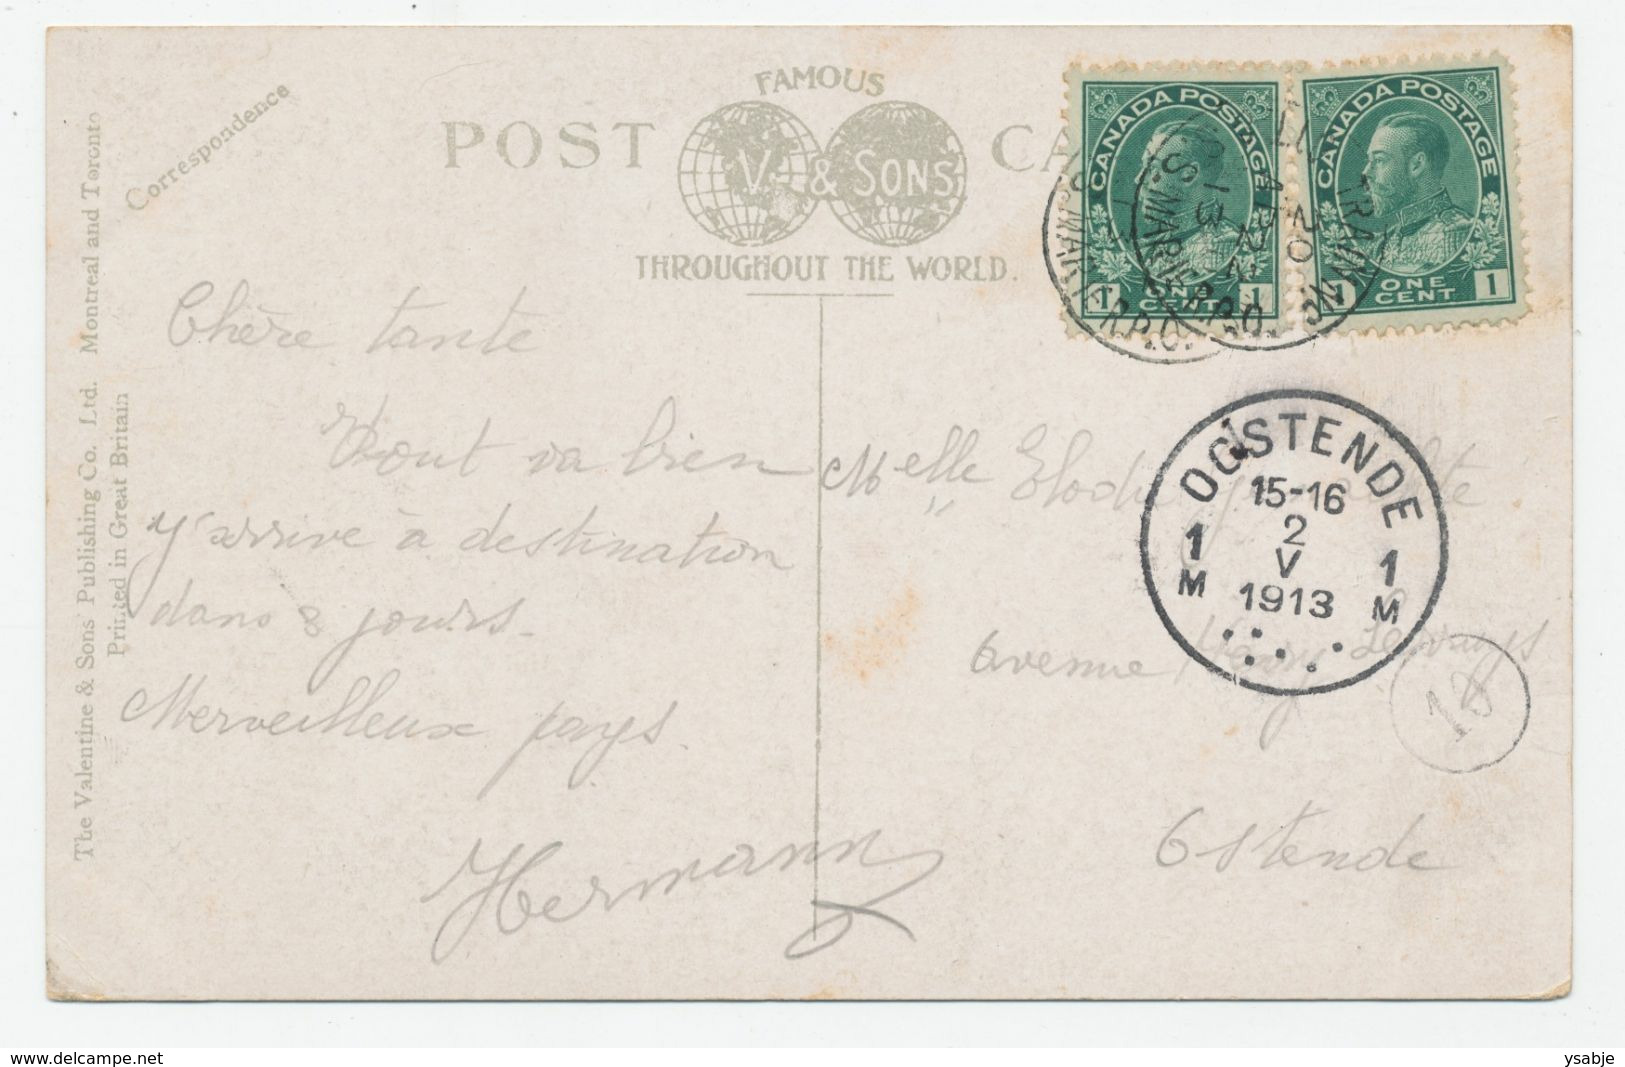 Correspondence
FAMOUS
POST CA
V. & SONS
THROUGHOUT THE WORLD.
CANADA POSTAGE
1 ONE CENT 1
CANADA POSTAGE
1 ONE CENT 1
TRAIN No
20
AP 22
13
S. MARIE R.P.O.
MARIE R.P.O.
OOSTENDE
15-16
2
V
1913
1 M
1 M
Chère tante
Tout va bien
J'arrive à destination
dans 8 jours.
Merveilleux pays.
Hermann
Melle Elodie
Avenue Henry
Ostende
18
The Valentine & Sons' Publishing Co. Ltd. Montreal and Toronto
Printed in Great Britain
www.delcampe.net
ysabje